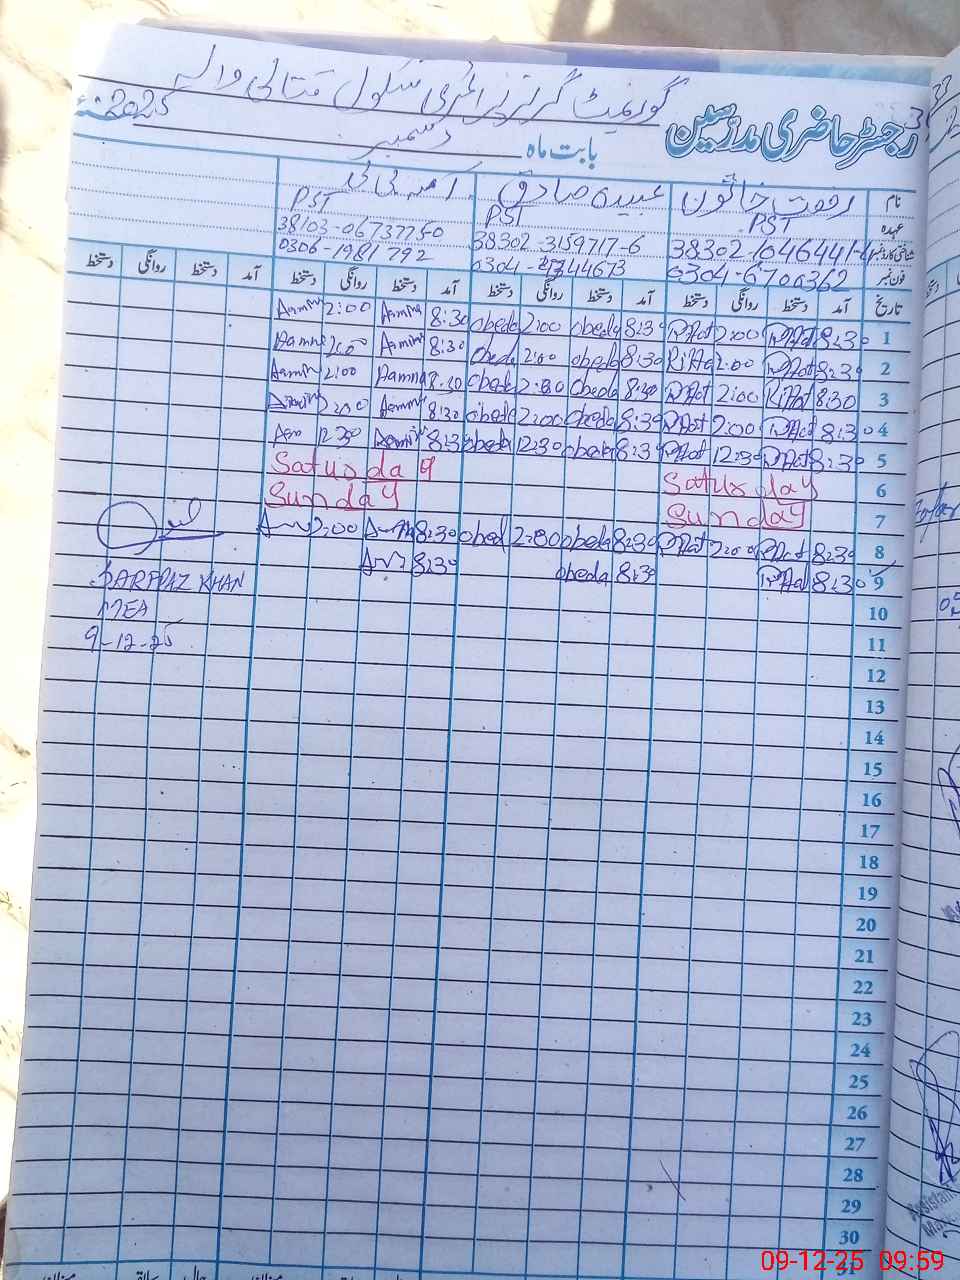 رجسٹر حاضری مدرسین
گورنمنٹ گرلز پرائمری سکول متالی والہ
بابت ماہ دسمبر 2025
نام رفعت خاتون عبیدہ صادق آمنہ بی بی
عہدہ PST PST PST
شناختی کارڈ نمبر 38302-3159717-6 38103-06737750
فون نمبر 0304-6706362 0306-1981792
تاریخ آمد دستخط روانگی دستخط آمد دستخط روانگی دستخط آمد دستخط روانگی دستخط آمد دستخط روانگی دستخط
1 8:30 Riffat 2:00 Riffat 8:30 obeda 2:00 obeda 8:30 Aamna 2:00 Aamna
2 8:30 Riffat 2:00 Riffat 8:30 obeda 2:00 obeda 8:30 Aamna 2:00 Aamna
3 8:30 Riffat 2:00 Riffat 8:30 obeda 2:00 obeda 8:30 Aamna 2:00 Aamna
4 8:30 Riffat 2:00 Riffat 8:30 obeda 2:00 obeda 8:30 Aamna 2:00 Aamna
5 8:30 Riffat 12:30 Riffat 8:30 obeda 12:30 obeda 8:30 Aamna 12:30
6 Saturday Saturday
7 Sunday Sunday
8 8:30 Riffat 2:00 Riffat 8:30 obeda 2:00 obed 8:30 2:00
9 8:30 Riffat 8:30 obeda 8:30
SARFRAZ KHAN
MEA
9-12-25
10
11
12
13
14
15
16
17
18
19
20
21
22
23
24
25
26
27
28
29
30
31
09-12-25 09:59